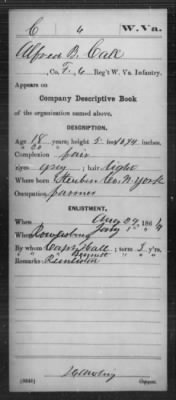 C 6 W. Va.
Alfred B. Call
, Co. F, 6 Reg't W. Va. Infantry.
Appears on
Company Descriptive Book
of the organization named above.
DESCRIPTION.
Age 18 years; height 5 feet inches.
Complexion fair
Eyes grey; hair light
Where born Steuben Co. N. York
Occupation farmer
ENLISTMENT.
When Aug 29, 1864
Where
By whom Capt Hall; term y'rs.
Remarks:
Copyist.